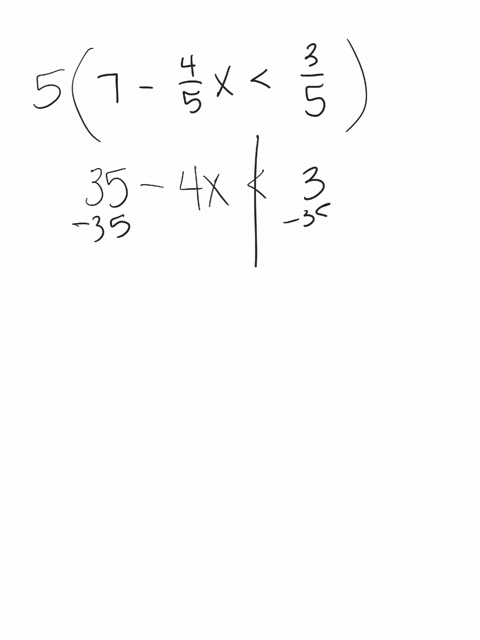 5(7 - 4/5 x < 3/5)
35 - 4x < 3
-35 -35